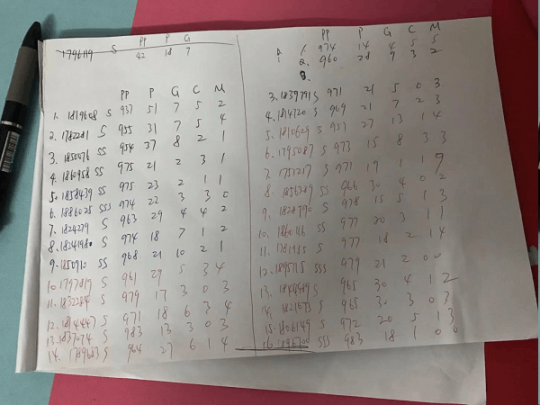 PP P G
1796119 S 42 18 7
PP P G C M
1. 1819608 S 937 51 7 5 2
2. 1782281 S 955 31 7 5 4
3. 1850076 SS 954 37 8 2 1
4. 1860958 SS 975 21 2 3 1
5. 1858439 SS 975 23 2 1 1
6. 1886025 SSS 974 22 3 3 0
7. 1824279 S 963 29 4 4 2
8. 1824198 S 974 18 7 1 2
9. 1850910 SS 968 21 10 2 1
10. 1797817 S 961 29 5 3 4
11. 1832284 S 979 17 3 0 3
12. 1814447 S 971 18 6 3 4
13. 1837074 S 983 13 3 0 3
14. 1789683 S 964 27 6 1 4
PP P G C M
1. 974 14 4 5 5
2. 960 28 9 3 2
3. 1839791 S 971 21 5 0 3
4. 1814720 S 969 21 7 2 3
5. 1810629 S 927 27 13 1 4
6. 1795087 S 973 15 8 3 3
7. 1751217 S 977 19 1 1
8. SS 966 30 4 0 2
9. 1828790 S 978 15 5 1 3
10. SS 977 20 3 1 1
11. S 977 18 2 1 4
12. SSS 979 21 2 0 0
13. S 965 30 4 1 2
14. S 965 30 3 0 3
15. 1806149 S 972 20 5 1 3
16. SSS 983 18 1 0 0